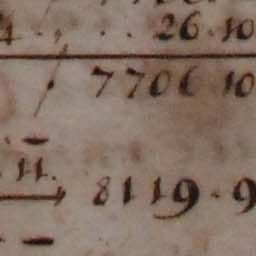 4 . . . 26. 10
7706 10
. 11. 8119. 9